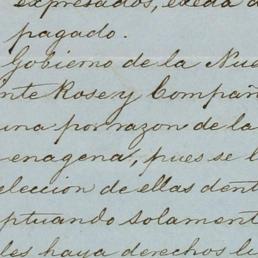 expresados, exceda d
pagado.
Gobierno de la Nue
nte Rose y Compañ
una por razon de la
enagena, pues se l
eleccion de ellas dent
ptuando solament
les haya derechos